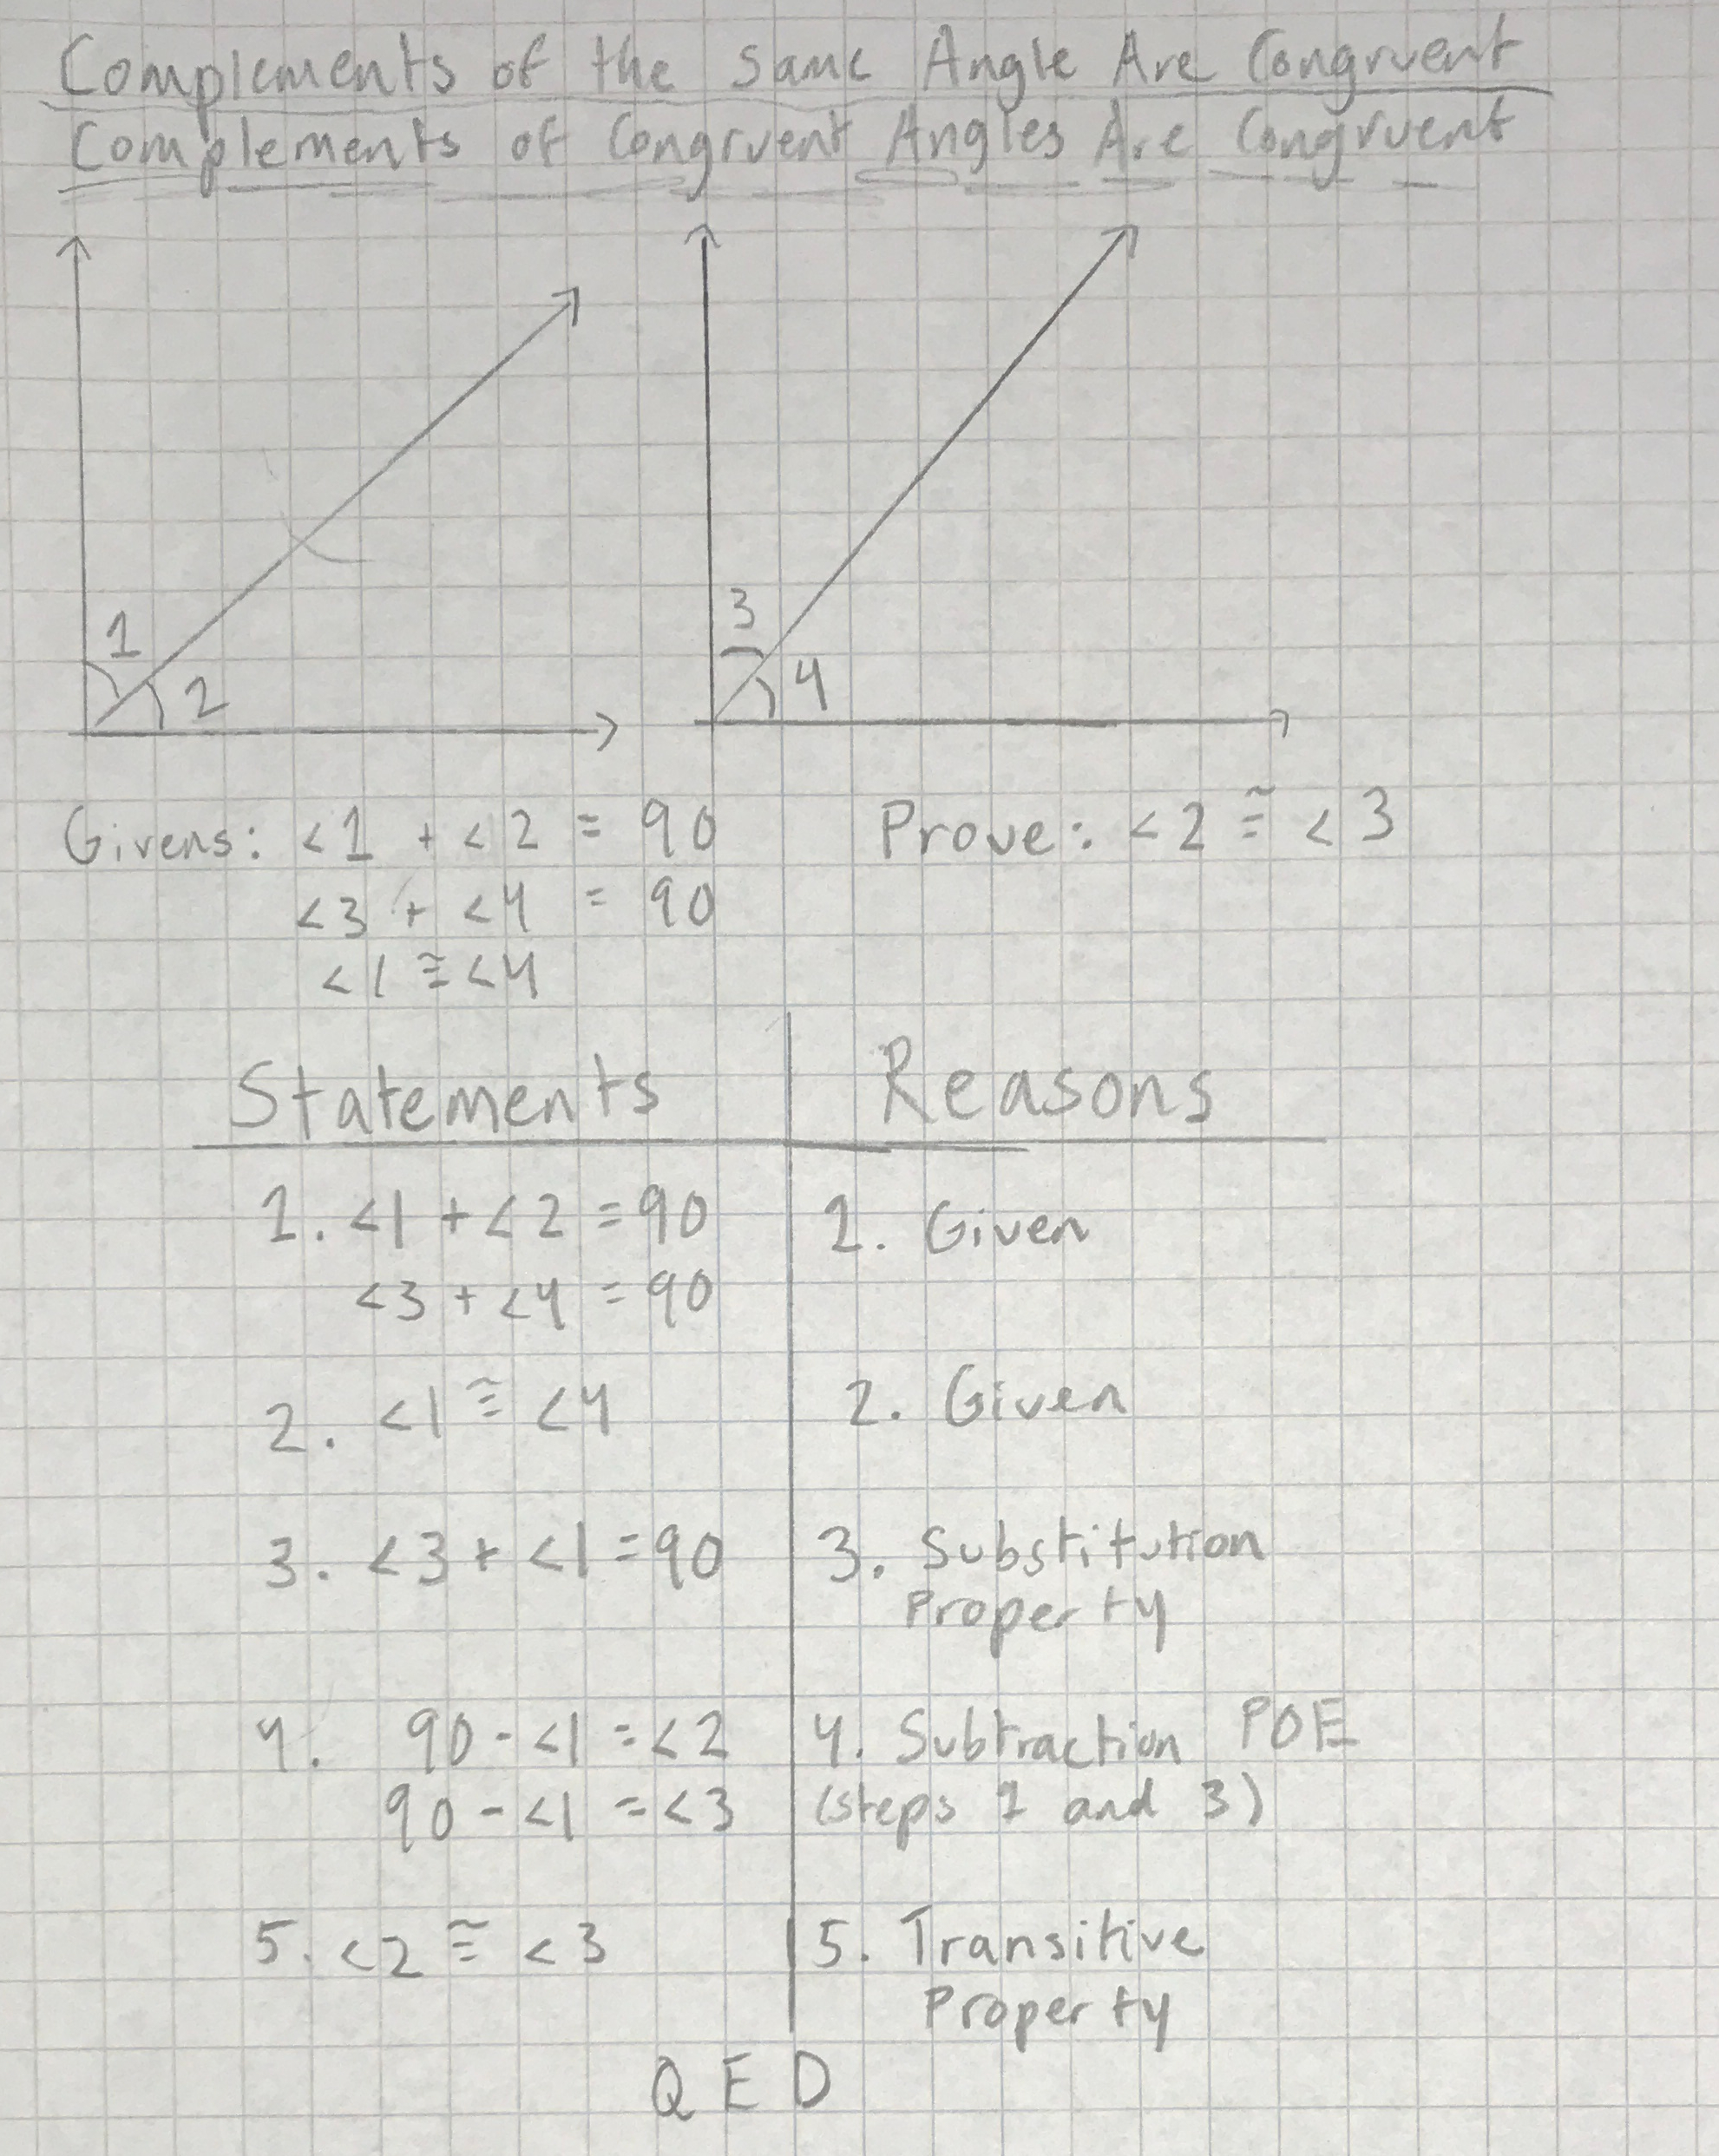 Complements of the Same Angle Are Congruent
Complements of Congruent Angles Are Congruent
1
2
3
4
Givens: <1 + <2 = 90
Prove: <2 ≅ <3
<3 + <4 = 90
<1 ≅ <4
Statements
Reasons
1. <1 + <2 = 90
1. Given
<3 + <4 = 90
2. <1 ≅ <4
2. Given
3. <3 + <1 = 90
3. Substitution
Property
4. 90 - <1 = <2
4. Subtraction POE
90 - <1 = <3
(steps 1 and 3)
5. <2 ≅ <3
5. Transitive
Property
QED